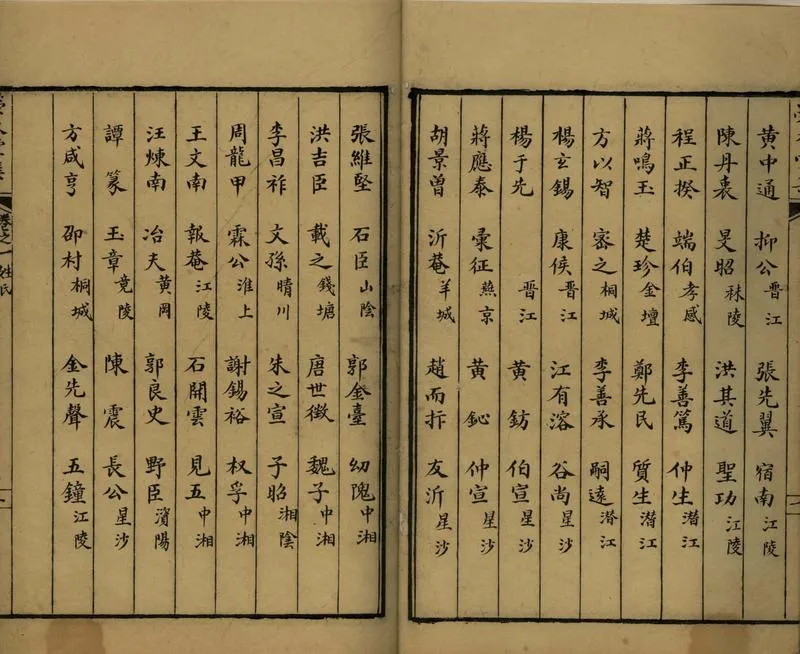 黃中通 抑公 晉江 張先翼 宿南 江陵
陳丹衷 旻昭 秣陵 洪其道 聖功 江陵
程正揆 端伯 孝感 李善篤 仲生 潛江
蔣鳴玉 楚珍 金壇 鄭先民 質生 潛江
方以智 密之 桐城 李善承 嗣逵 潛江
楊玄錫 康侯 晉江 江有溶 谷尚 星沙
楊于先 晉江 黃鈁 伯宣 星沙
蔣應泰 彙征 燕京 黃鈊 仲宣 星沙
胡景曾 沂菴 羊城 趙而抃 友沂 星沙
張維堅 石臣 山陰 郭金臺 幼隗 中湘
洪吉臣 載之 錢塘 唐世徵 魏子 中湘
李昌祚 文孫 晴川 朱之宣 子昭 湘陰
周龍甲 霖公 淮上 謝錫裕 权孚 中湘
王文南 報菴 江陵 石開雲 見五 中湘
汪煉南 冶夫 黃岡 郭良史 野臣 濱陽
譚篆 玉章 竟陵 陳震 長公 星沙
方咸亨 邵村 桐城 金先聲 五鐘 江陵
卷之一 姓氏